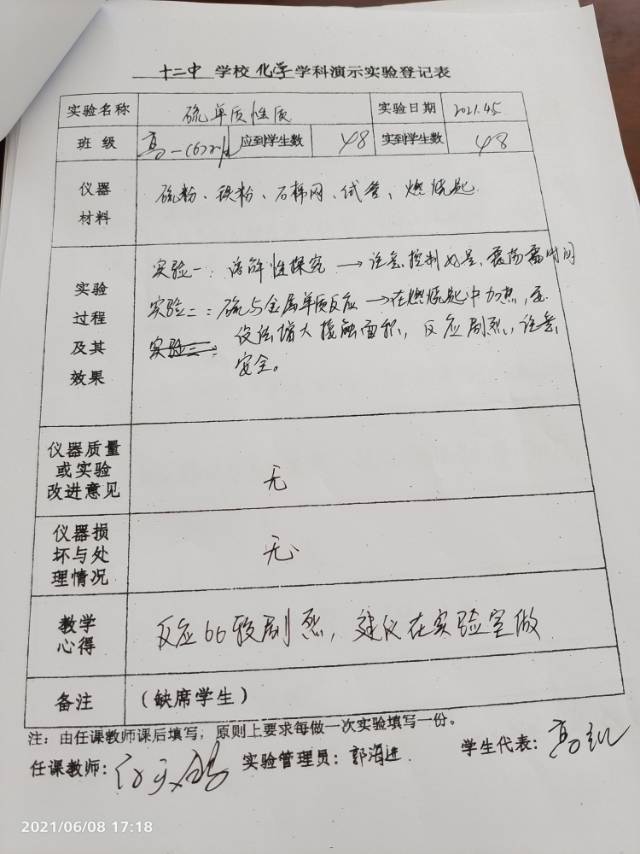 十二中 学校 化学 学科演示实验登记表
实验名称 硫单质性质 实验日期 2021.4.5
班 级 高一(6) 应到学生数 48 实到学生数 48
仪器
材料
硫粉、铁粉、石棉网、试管、燃烧匙
实验
过程
及其
效果
实验一：溶解性探究 → 注意控制用量、震荡需时间
实验二：硫与金属单质反应 → 在燃烧匙中加热，
设法增大接触面积，反应剧烈，注意
实验三：
安全。
仪器质量
或实验
改进意见
无
仪器损
坏与处
理情况
无
教学
心得
反应比较剧烈，建议在实验室做
备注 （缺席学生）
注：由任课教师课后填写，原则上要求每做一次实验填写一份。
任课教师： 实验管理员：郭海进 学生代表：
2021/06/08 17:18